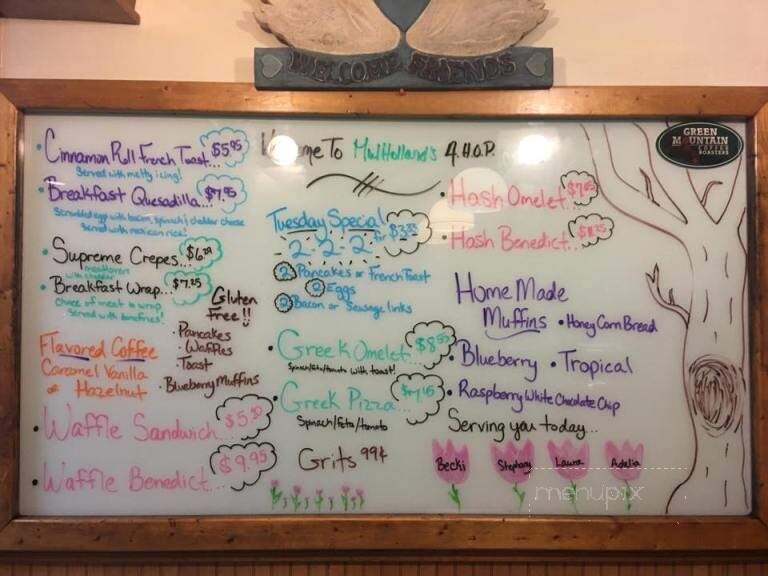 WELCOME FRIENDS
GREEN
MOUNTAIN
COFFEE
ROASTERS
Welcome To MulHolland's 4.H.O.P.
• Cinnamon Roll French Toast... $5.95
Served with melty icing!
• Breakfast Quesadilla... $7.95
Scrambled egg with bacon, spinach & cheddar cheese
Served with mexican rice!
• Supreme Crepes...
with
• Breakfast Wrap... $7.25
Choice of meat in wrap
Served with homefries!
Flavored Coffee
Caramel Vanilla
or Hazelnut
Gluten
Free!!
• Pancakes
• Waffles
Toast
• Blueberry Muffins
• Waffle Sandwich...
• Waffle Benedict... $9.95
Tuesday Special
2-2-2 for
2 Pancakes or French Toast
2 Eggs
2 Bacon or Sausage links
• Greek Omelet...
Spinach/feta/tomato with toast!
• Greek Pizza...
Spinach/feta/tomato
Grits 99¢
• Hash Omelet
• Hash Benedict...
Home Made
Muffins • Honey Corn Bread
• Blueberry • Tropical
• Raspberry White Chocolate Chip
Serving you today...
Becki Stephany Laura Adelia
menupix